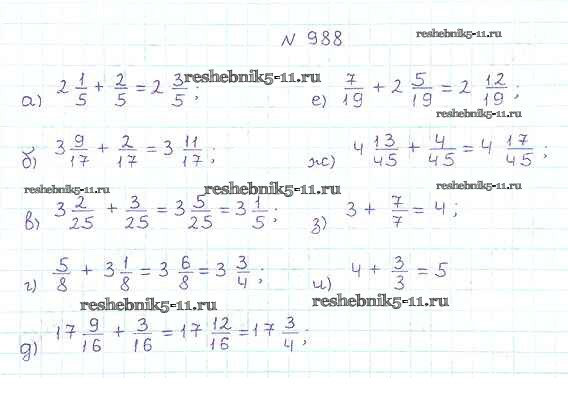 N 988
reshebnik5-11.ru
а) 2 1/5 + 2/5 = 2 3/5;
reshebnik5-11.ru
е) 7/19 + 2 5/19 = 2 12/19;
reshebnik5-11.ru
б) 3 9/17 + 2/17 = 3 11/17;
ж) 4 13/45 + 4/45 = 4 17/45;
reshebnik5-11.ru
reshebnik5-11.ru
reshebnik5-11.ru
в) 3 2/25 + 3/25 = 3 5/25 = 3 1/5;
з) 3 + 7/7 = 4;
г) 5/8 + 3 1/8 = 3 6/8 = 3 3/4;
и) 4 + 3/3 = 5
reshebnik5-11.ru
reshebnik5-11.ru
д) 17 9/16 + 3/16 = 17 12/16 = 17 3/4;